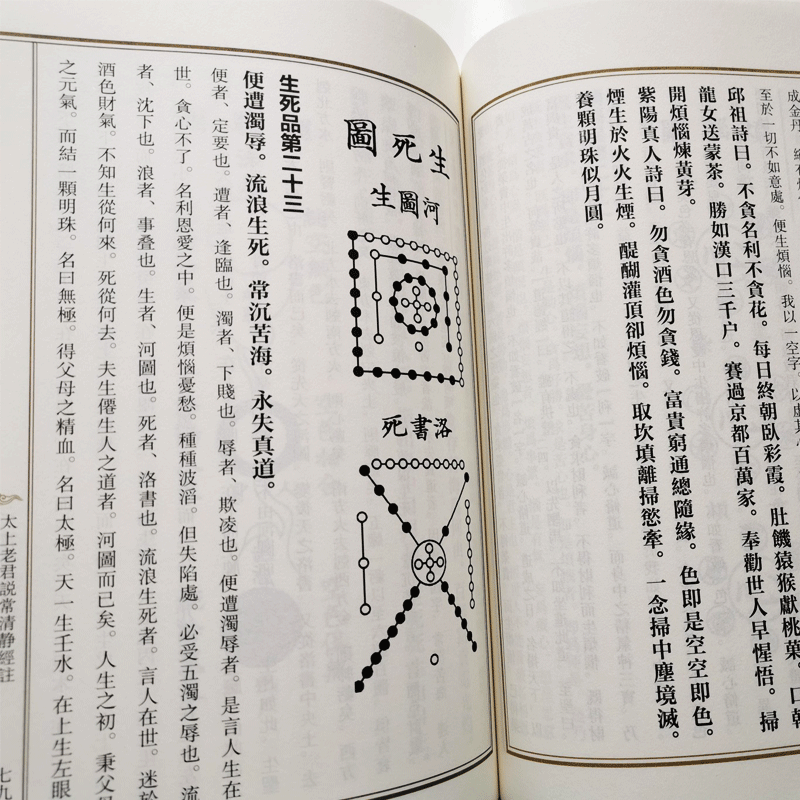 成金丹。
至於一切不如意處。便生煩惱。我以一空字。以處其心
邱祖詩曰。不貪名利不貪花。每日終朝臥彩霞。肚饑猿猴獻桃菓。口乾
龍女送蒙茶。勝如漢口三千户。賽過京都百萬家。奉勸世人早惺悟。掃
開煩惱煉黃芽。
紫陽真人詩曰。勿貪酒色勿貪錢。富貴窮通總隨緣。色即是空空即色。
煙生於火火生煙。醍醐灌頂卻煩惱。取坎填離掃慾牽。一念掃中塵境滅。
養顆明珠似月圓。
生死圖
河圖生
洛書死
生死品第二十三
便遭濁辱。流浪生死。常沉苦海。永失真道。
便者、定要也。遭者、逢臨也。濁者、下賤也。辱者、欺凌也。便遭濁辱者。是言人生在
世。貪心不了。名利恩愛之中。便是煩惱憂愁。種種波滔。但失陷處。必受五濁之辱也。流
者、沈下也。浪者、事叠也。生者、河圖也。死者、洛書也。流浪生死者。言人在世。迷於
酒色財氣。不知生從何來。死從何去。夫生僊生人之道者。河圖而已矣。人生之初。秉父母
之元氣。而結一顆明珠。名曰無極。得父母之精血。名曰太極。天一生壬水。在上生左眼
太上老君説常清静經註
七九